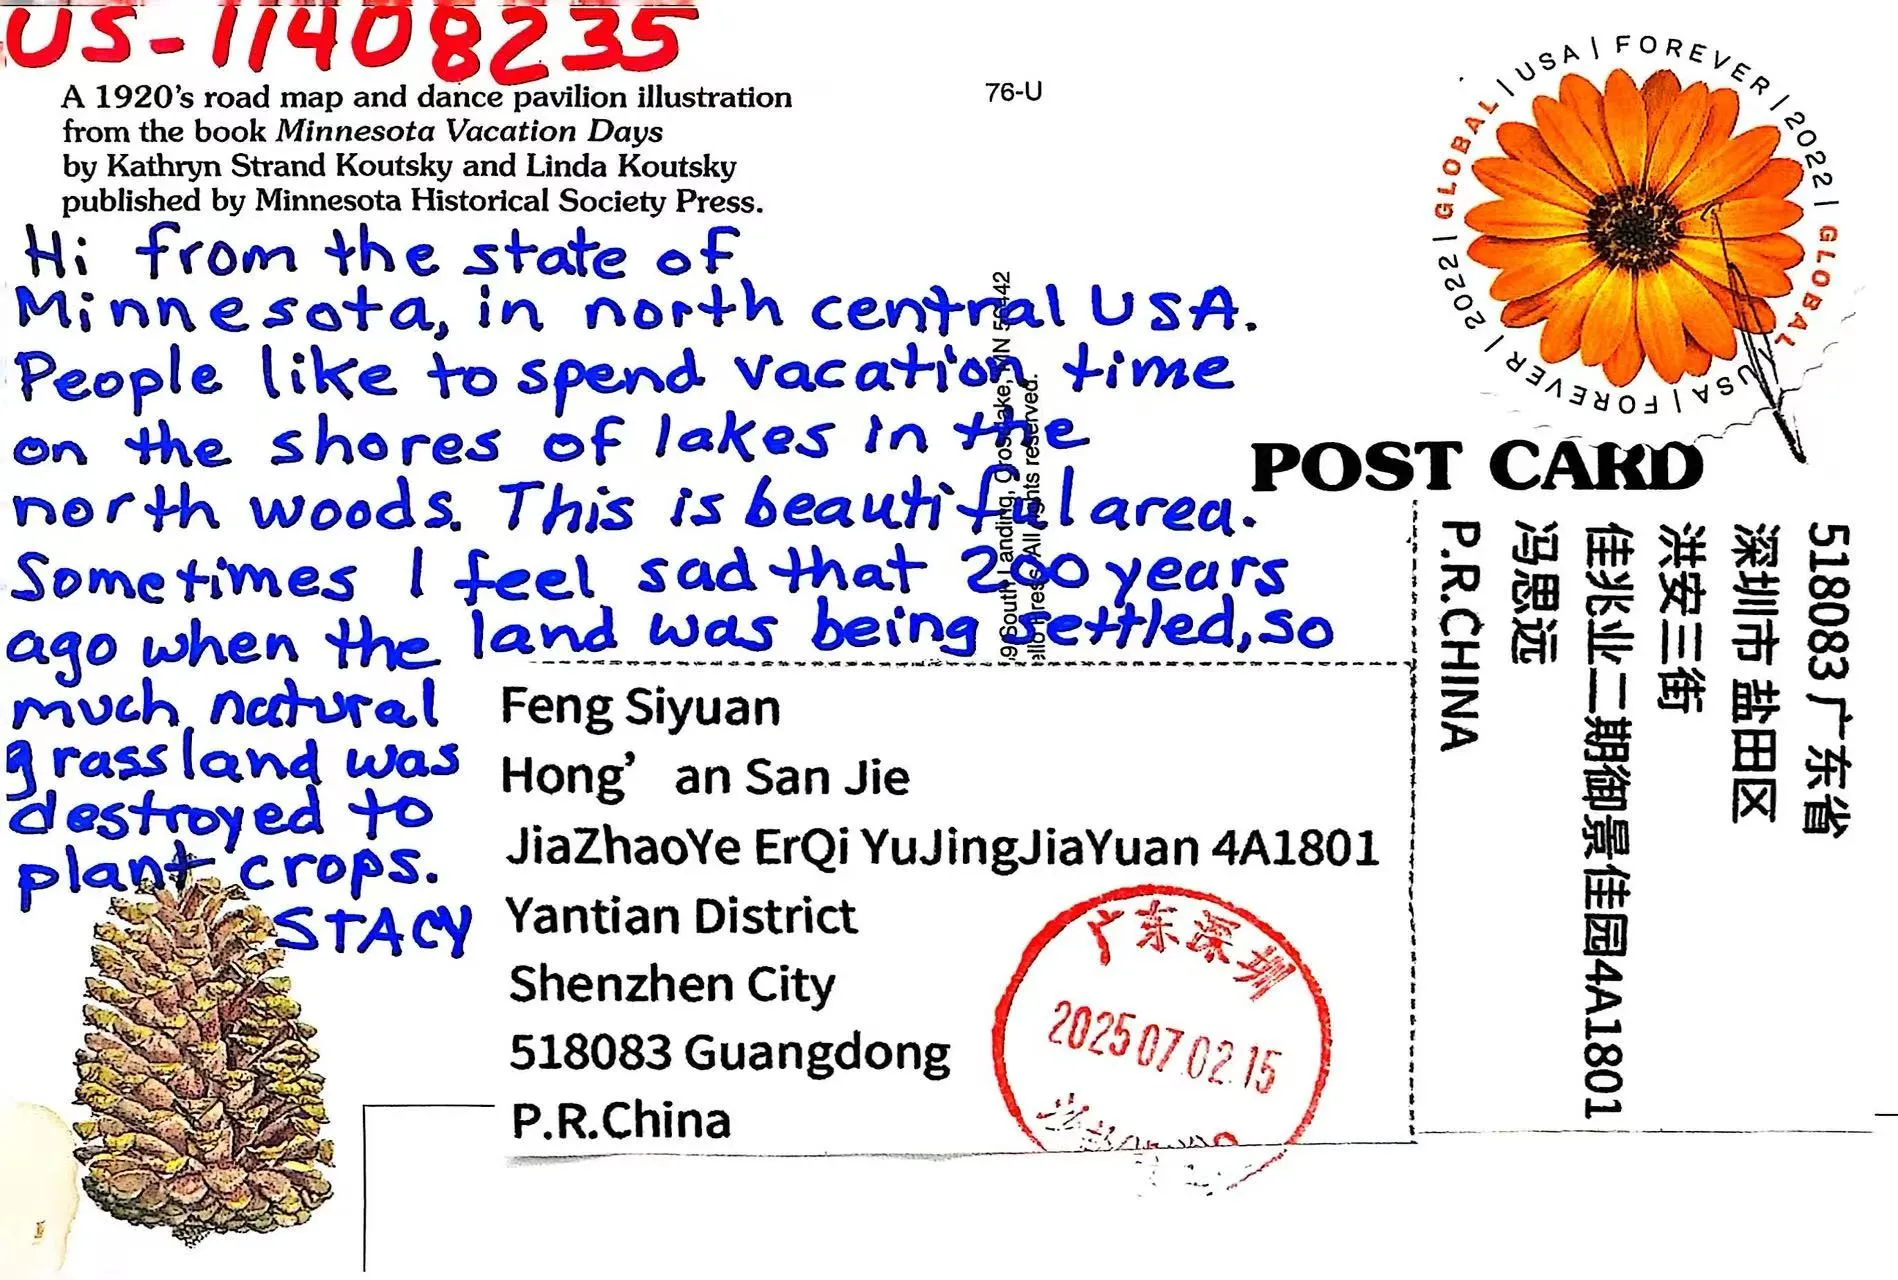 US-11408235
A 1920's road map and dance pavilion illustration
from the book Minnesota Vacation Days
by Kathryn Strand Koutsky and Linda Koutsky
published by Minnesota Historical Society Press.
76-U
USA | FOREVER | 2022 | GLOBAL
USA | FOREVER | 2022 | GLOBAL
Hi from the state of
Minnesota, in north central USA.
People like to spend vacation time
on the shores of lakes in the
north woods. This is beautiful area.
Sometimes I feel sad that 200 years
ago when the land was being settled, so
much natural
grassland was
destroyed to
plant crops.
STACY
South Landing, Cross Lake, MN 56442
All rights reserved.
POST CARD
518083 广东省
深圳市 盐田区
洪安三街
佳兆业二期御景佳园4A1801
冯思远
P.R.CHINA
Feng Siyuan
Hong’an San Jie
JiaZhaoYe ErQi YuJingJiaYuan 4A1801
Yantian District
Shenzhen City
518083 Guangdong
P.R.China
广东深圳
2025 07.02.15